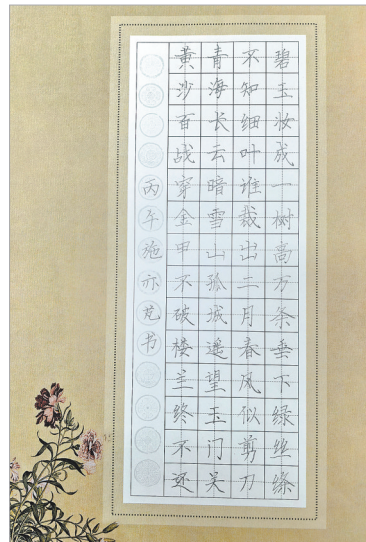 碧玉妆成一树高万条垂下绿丝绦
不知细叶谁裁出二月春风似剪刀
青海长云暗雪山孤城遥望玉门关
黄沙百战穿金甲不破楼兰终不还
丙午施亦芃书